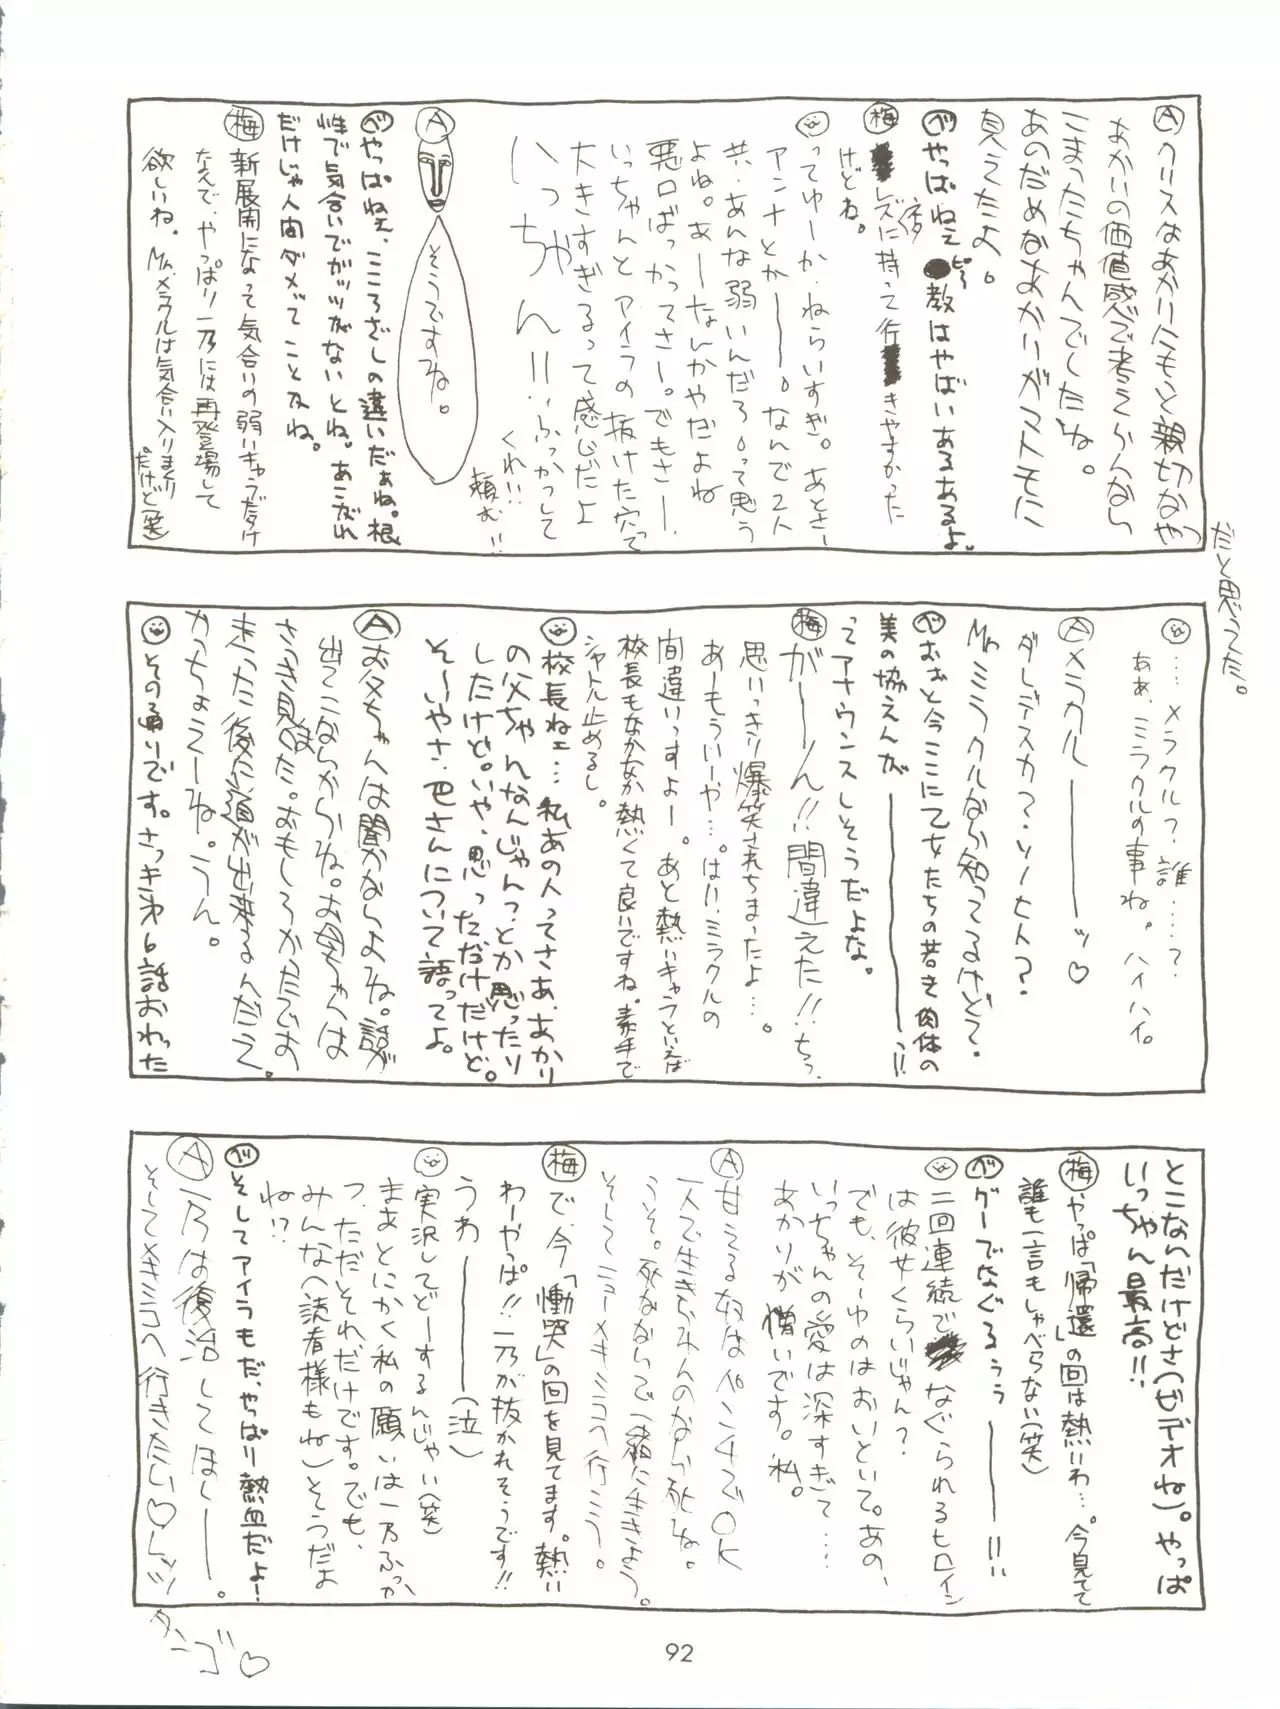 Ⓐクリスはあかりにもっと親切なやつ
だと思ってた。
あかりの価値感で考えらんなら
こまったちゃんでしたね。
あのだめなあかりがマトモに
見えたよ。
べ やっぱねえ ピー教はやばいあるあるよ。
梅 レズに持って行きやすかった
けどね。
ってゆーか、ねらいすぎ。あとさー
アンナとかーー。なんで2人
共、あんな弱いんだろ。って思う
よね。あーなんかやだよね
悪口ばっかってさー。でもさー、
いっちゃんとアイラの抜けた穴って
大きすぎるって感じだよ
いっちゃん!!ふっかつして
くれ!!
頼む!!
Ⓐ
そうですね。
べ やっぱねえ、こころざしの違いだぁね。根
性で気合いでガッツがないとね。あこがれ
だけじゃ人間ダメってことよね。
梅 新展開になって気合いの弱いキャラだけ
なんで、やっぱり一乃には再登場して
欲しいね。Mr.メラクルは気合い入りまくり
だけど(笑)
……メラクル?誰……?
ああ、ミラクルの事ね。ハイハイ。
Ⓐメラカルーーーッ♡
ダレデスカ?ソノヒト?
Mr.ミラクルなら知ってるけどて・
べ おおと今ここに乙女たちの若き肉体の
美の協えんがーーーーっ!!
ってアナウンスしそうだよな。
梅 がーーん!!間違えた!!ちっ、
思いっきり爆笑されちまったよ…。
あーもういーや…。はい、ミラクルの
間違いっすよー。あと熱いキャラといえば
校長もなかなか熱くて良いですね。素手で
シャトル止めるし。
校長ねェ…私あの人ってさあ、あかり
の父ちゃんなんじゃんっ、とか思ったり
したけど。いや、思っただけだけど。
そーいやさ、巴さんについて語ってよ。
Ⓐお父ちゃんは聞かなよね。話が
出てこないからね。お母ちゃんは
さっき見た。おもしろかったでお
走った後に道が出来るんだって。
かっちょえーね。うん。
その通りです。さっき第6話おわった
とこなんだけどさ(ビデオね)。やっぱ
いっちゃん最高!!
梅 やっぱ「帰還」の回は熱いわ…。今見てて
誰も一言もしゃべらない(笑)
べ グーでなぐるぅぅーーー!!
二回連続でなぐられるヒロイン
は彼女くらいじゃん?
でも、そーゆのはおいといて。あの、
いっちゃんの愛は深すぎて……
あかりが憎いです。私。
Ⓐ甘える奴はパンチでOK
一人で生きらんのなら死ね。
うそ。死なないで一緒に生きよう。
そしてニューメキシコへ行こう。
梅 で、今「慟哭」の回を見てます。熱い
わーやっぱ!!一乃が抜かれそうです!!
うわーーー(泣)
実況してどーするんじゃい(笑)
まあとにかく私の願いは一乃ふっか
つ、ただそれだけです。でも、
みんな(読者様もね)そうだよ
ね!?
べ そしてアイラもだ、やっぱり熱血だよ!
Ⓐ一乃は復活してほしーー。
そしてメキシコへ行きたい♡レッツ
タンゴ♡
92